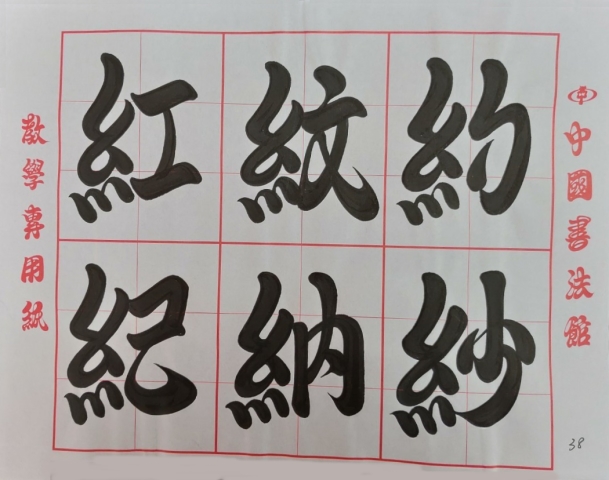 中國書法館
約紗
紋納
紅紀
教學專用紙
38